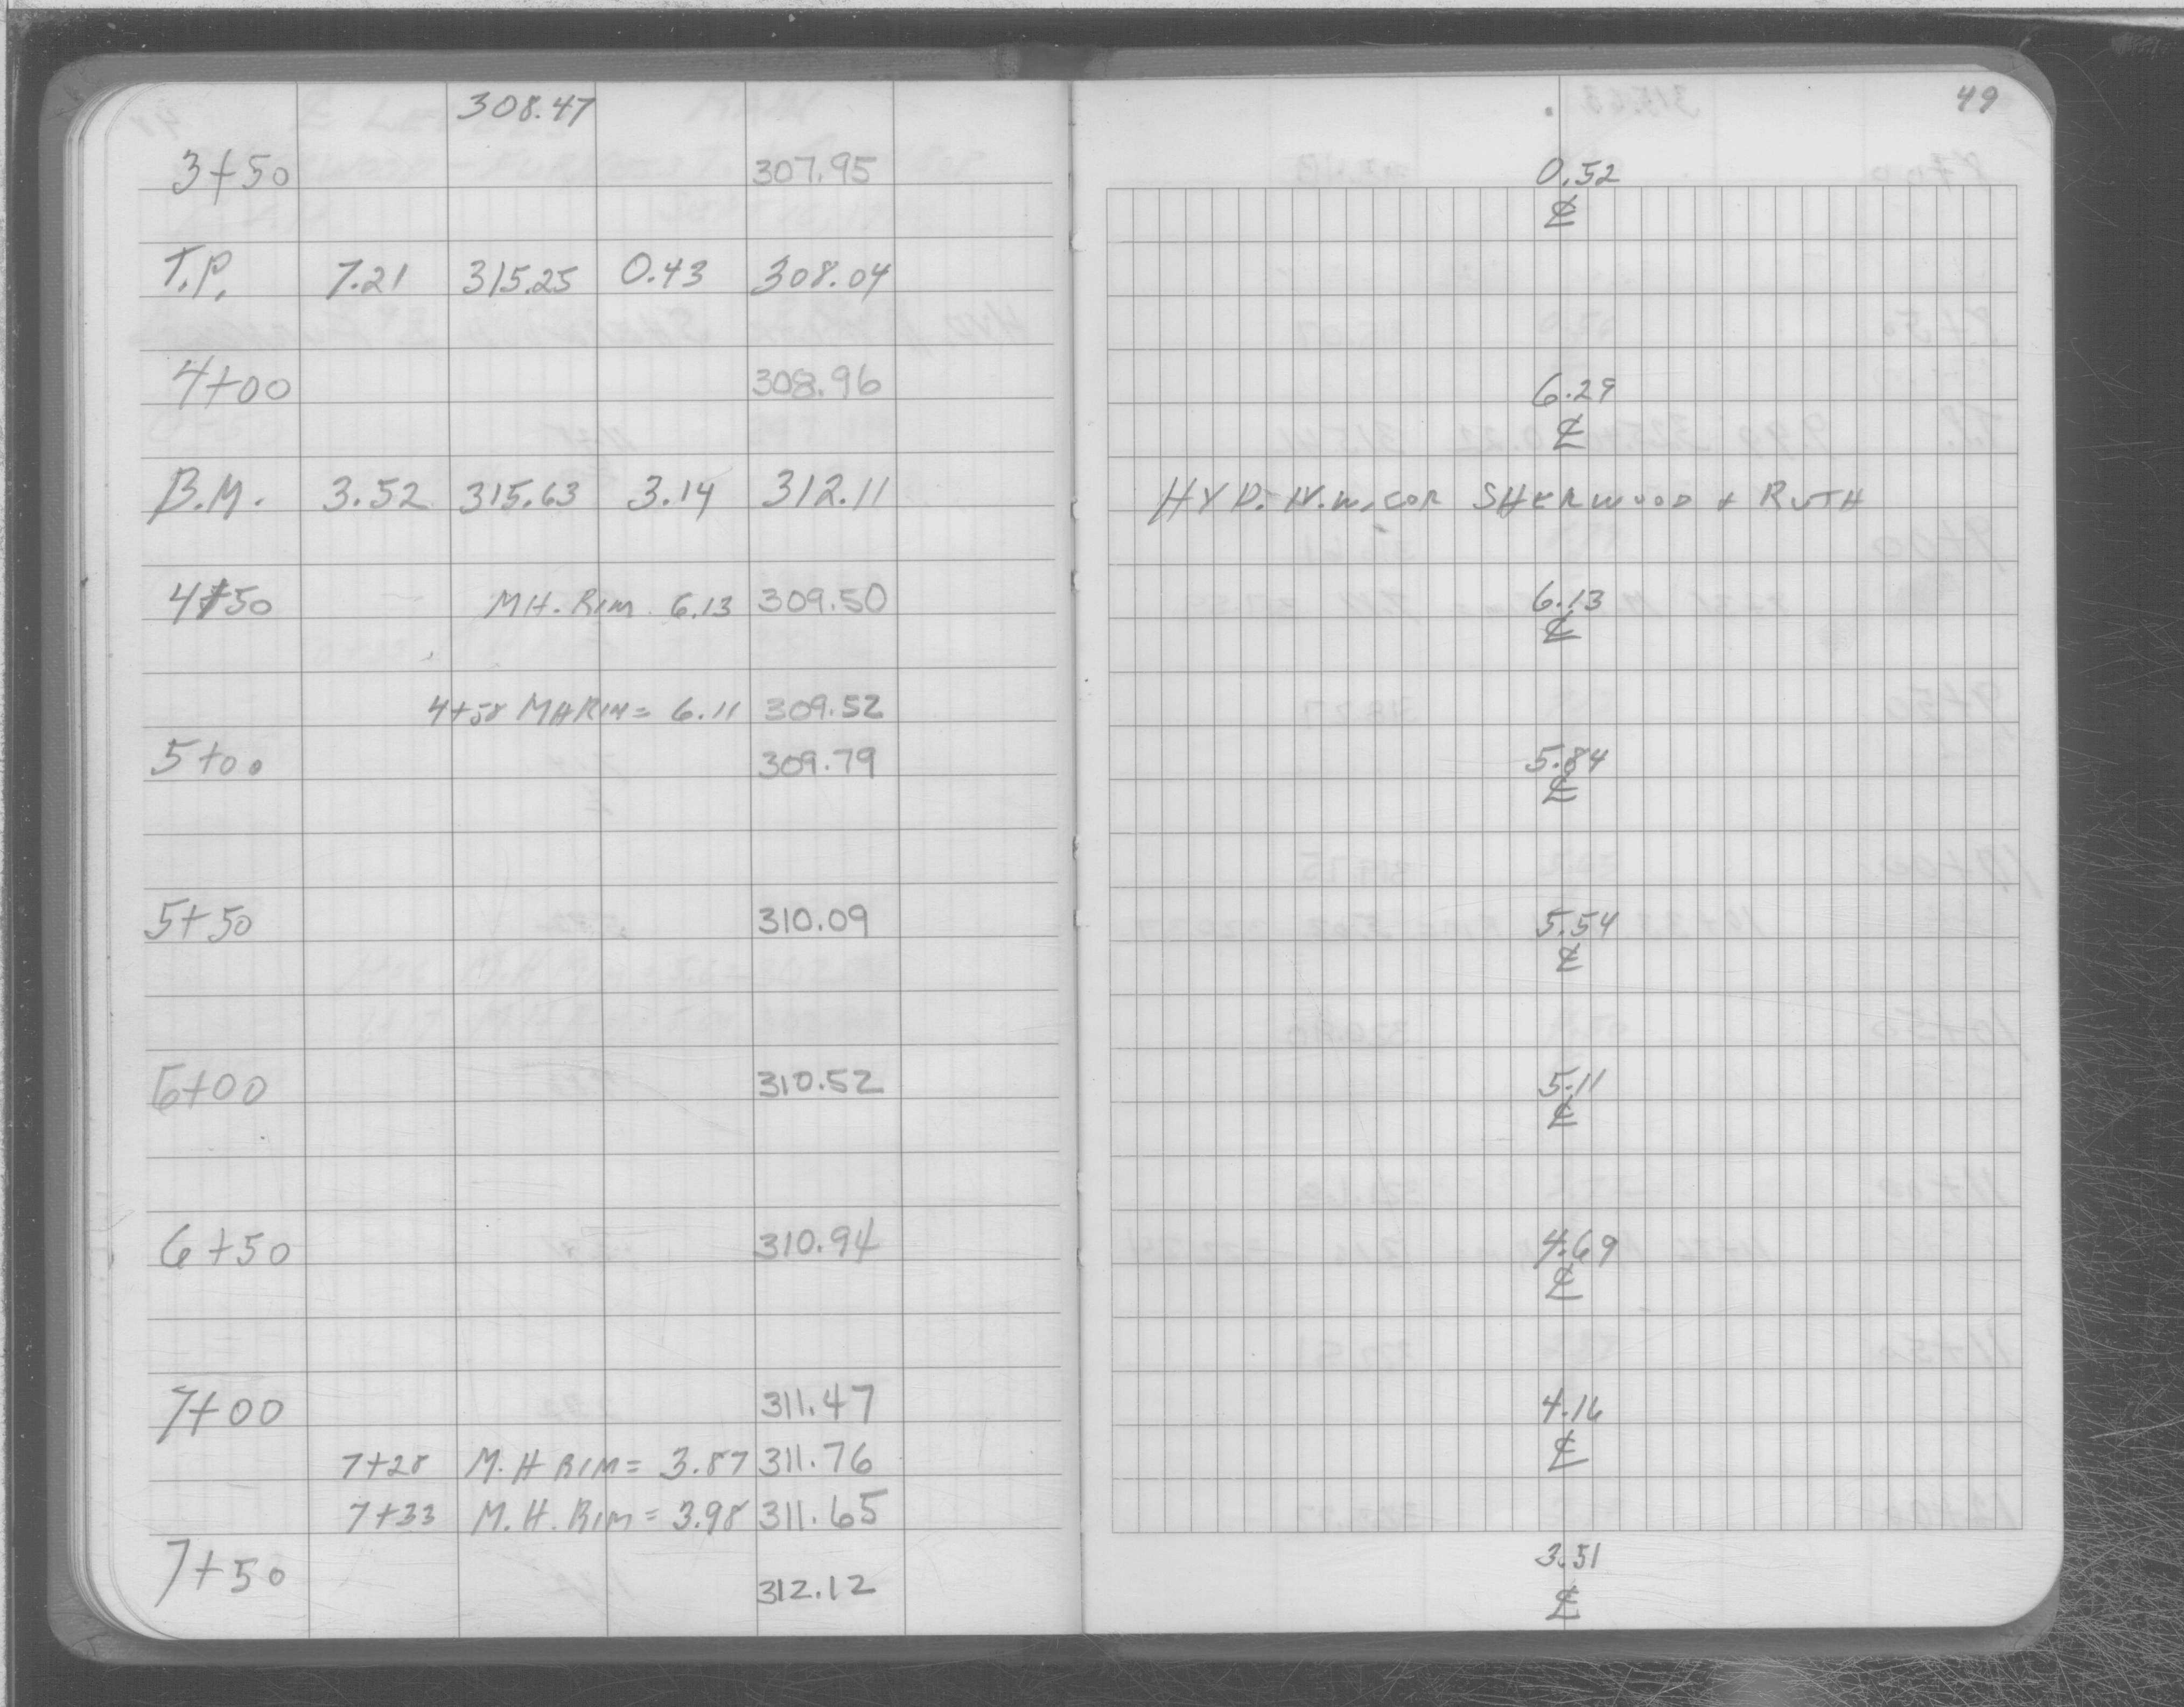 308.47
49
3+50 307.95 0.52
℄
T.P. 7.21 315.25 0.43 308.04
4+00 308.96 6.29
℄
B.M. 3.52 315.63 3.14 312.11 HYD. N.W. COR SHERWOOD + RUTH
4+50 MH. RIM 6.13 309.50 6.13
℄
4+58 MH RIM = 6.11 309.52
5+00 309.79 5.84
℄
5+50 310.09 5.54
℄
6+00 310.52 5.11
℄
6+50 310.94 4.69
℄
7+00 311.47 4.16
℄
7+28 M.H RIM = 3.87 311.76
7+33 M.H. RIM = 3.98 311.65
7+50 312.12 3.51
℄